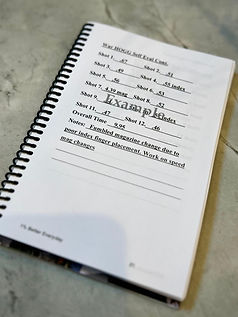 War HOGG Self Eval Cont.
Shot 1. .67 Shot 2. .51
Shot 3. .49 Shot 4. .55 index
Shot 5. .56 Shot 6. .53
Shot 7. 4.39 mag Shot 8. .52
Shot 9. index
Example
Shot 11. .47 Shot 12. .46
Overall Time 9.95
Notes: Fumbled magazine change due to
poor index finger placement. Work on speed
mag changes
1% Better Everyday